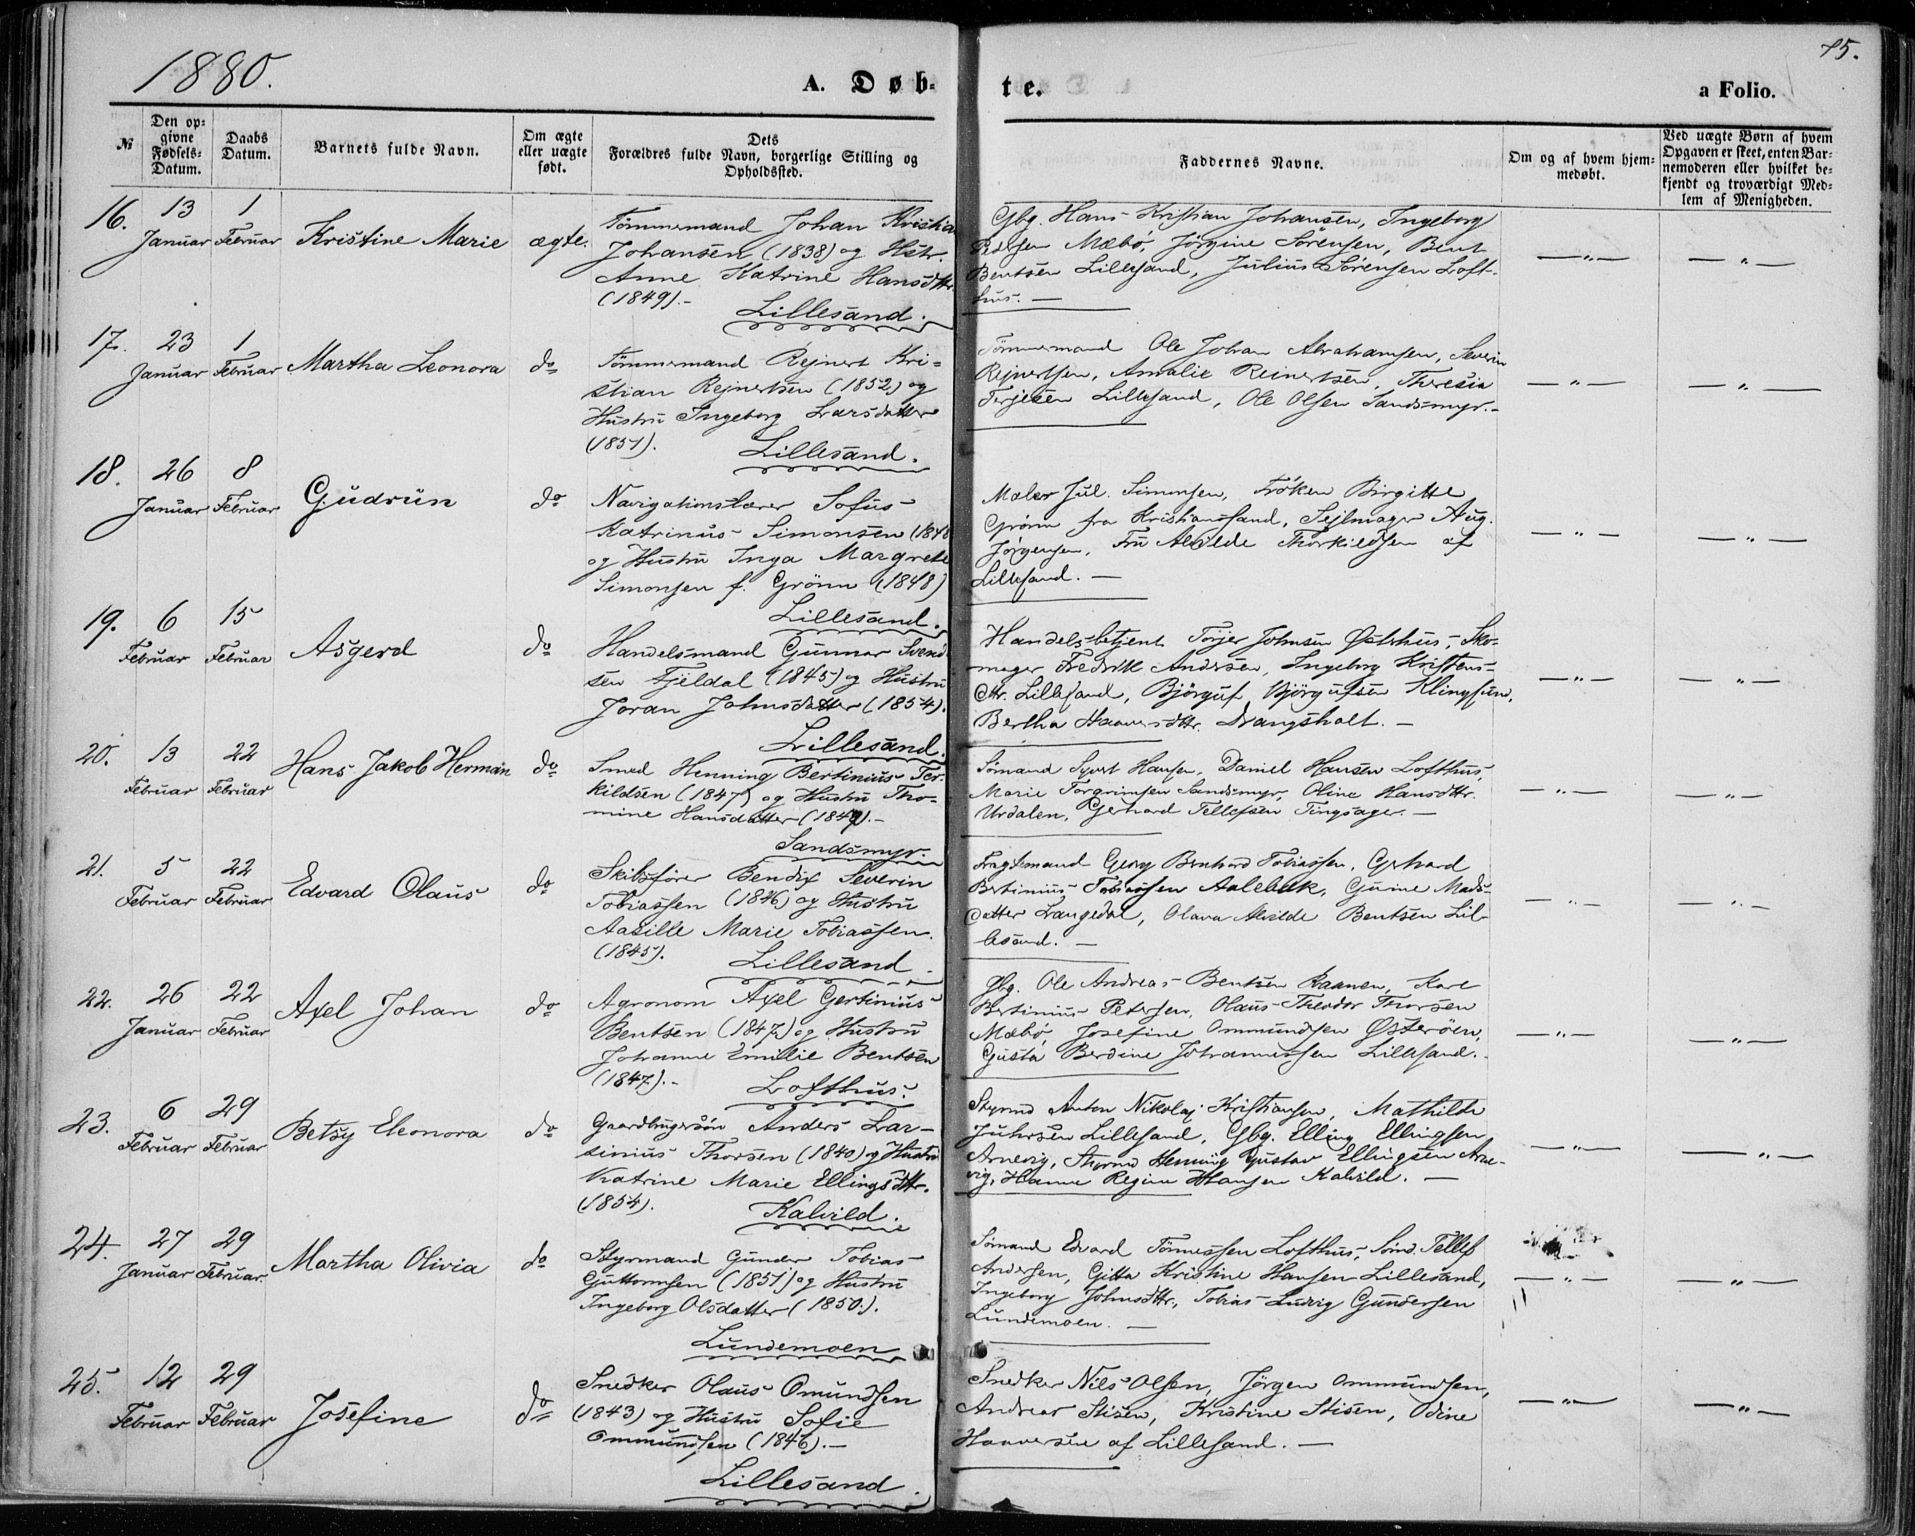 1880.
A. Døb-
te.
a Folio.
75.
№
Den op-
givne
Fødsels-
Datum.
Daabs
Datum.
Barnets fulde Navn.
Om ægte
eller uægte
født.
Dets
Forældres fulde Navn, borgerlige Stilling og
Opholdssted.
Faddernes Navne.
Om og af hvem hjem-
medøbt.
Ved uægte Børn af hvem
Opgaven er skeet, enten Bar-
nemoderen eller hvilket be-
kjendt og troværdigt Med-
lem af Menigheden.
16.
13
Januar
1
Februar
Kristine Marie
ægte.
Tømmermand Johan Kristia
Johansen (1838) og Hstr.
Anne Katrine Hansdttr.
(1849).-
Lillesand.
Gbg. Hans Kristian Johansen, Ingeborg
Mæbø, Jørgine Sørensen, Bent
Bentsen Lillesand, Julius Sørensen Loft-
hus. —
— " —
— " —
17.
23
Januar
1
Februar
Martha Leonora
do
Tømmermand Rejnert Kri-
stian Rejnertsen (1852) og
Hustru Ingeborg Larsdatter
(1851).
Lillesand.
Tømmermand Ole Johan Abrahamsen, Severin
Rejnertsen, Amalie Reinertsen, Theresia
Terjesen Lillesand, Ole Olsen Sandsmyr.-
— " —
— " —
18.
26
Januar
8
Februar
Gudrun
do
Navigationslærer Sofus
Katrinus Simonsen (1848
og Hustru Inga Margrete
Simonsen f. Grönn (1848)
Lillesand.
Maler Jul. Simonsen, Frøken Birgitte
Grönn fra Kristianssand, Sejlmager Aug.
Jørgensen, Fru Alvilde Thorkildsen af
Lillesand. —
— " —
— " —
19.
6
Februar
15
Februar
Asgerd
do
Handelsmand Gunnar Svend
sen Fjeldal (1845) og Hustru
Joran Johnsdatter (1854).
Lillesand.
Handelsbetjent Terjer Johnsen Østerhus, Sko-
mager Fredrik Andersen, Ingeborg Kristens-
dtr. Lillesand, Bjørguf Bjørgufsen
Bertha Haaversdttr. Drangsholt. —
— " —
— " —
20.
13
Februar
22
Februar
Hans Jakob Herman
do
Smed Henning Bertinius Ter-
kildsen (1847) og Hustru Tho-
mine Hansdatter (1849).-
Sandsmyr.
Sømand Syvert Hansen, Daniel Hansen Lofthus,
Marie Torgrimsen Sandsmyr, Oline Hansdttr.
Urdalen, Gerhard Tellefsen Tingsager. —
— " —
— " —
21.
5
Februar
22
Februar
Edvard Olaus
do
Skibsfører Bendix Severin
Tobiassen (1846) og Hustru
Aasille Marie Tobiassen.
(1845).
Lillesand.
Fragtemand Georg Bernhard Tobiassen, Gerhard
Bertinius Tobiassen Aalebæk, Gurine Mads-
datter Langedal, Olava Alvilde Bentsen Lil-
lesand. —
— " —
— " —
22.
26
Januar
22
Februar
Axel Johan
do
Agronom Axel Gertinius
Bentsen (1847) og Hustru
Johanne Emilie Bentsen
(1847).-
Lofthus.
Gbg. Ole Andreas Bentsen Kaanen, Karl
Bertinius Petersen, Olaus Theodor Thorsen
Mæbø, Josefine Ommundsen Østerøen,
Gusta Berdine Johannessen Lillesand.
— " —
— " —
23.
6
Februar
29
Februar
Betsy Eleonora
do
Gaardbrugersön Anders Lar-
sinius Thorsen (1840) og Hustru
Katrine Marie Ellingsdttr.
(1854).
Kalvild.
Styrmd Anton Nikolaj Kristiansen, Mathilde
Juhrsen Lillesand, Gbg. Elling Ellingsen
Arnevig, Styrmd Henning Gustav Ellingsen Arne-
vig, Hanne Regine Hansen Kalvild. —
— " —
— " —
24.
27
Januar
29
Februar.
Martha Olivia
do
Styrmand Gunder Tobias
Guttormsen (1851) og Hustru
Ingeborg Olsdatter (1850).
Lundemoen
Sømand Edvard Tönnessen Lofthus, Sömd. Tellef
Andersen, Gitta Kristine Hansen Lillesand,
Ingeborg Johnsdttr., Tobias Ludvig Gundersen
Lundemoen. —
— " —
— " —
25.
12
Februar
29
Februar
Josefine
do
Snedker Olaus Omundsen
(1843) og Hustru Sofie
Ommundsen (1846).—
Lillesand.
Snedker Nils Olsen, Jörgen Ommundsen,
Andreas Stisen, Kristine Stisen, Odine
Haaversen af Lillesand. —
— " —
— " —